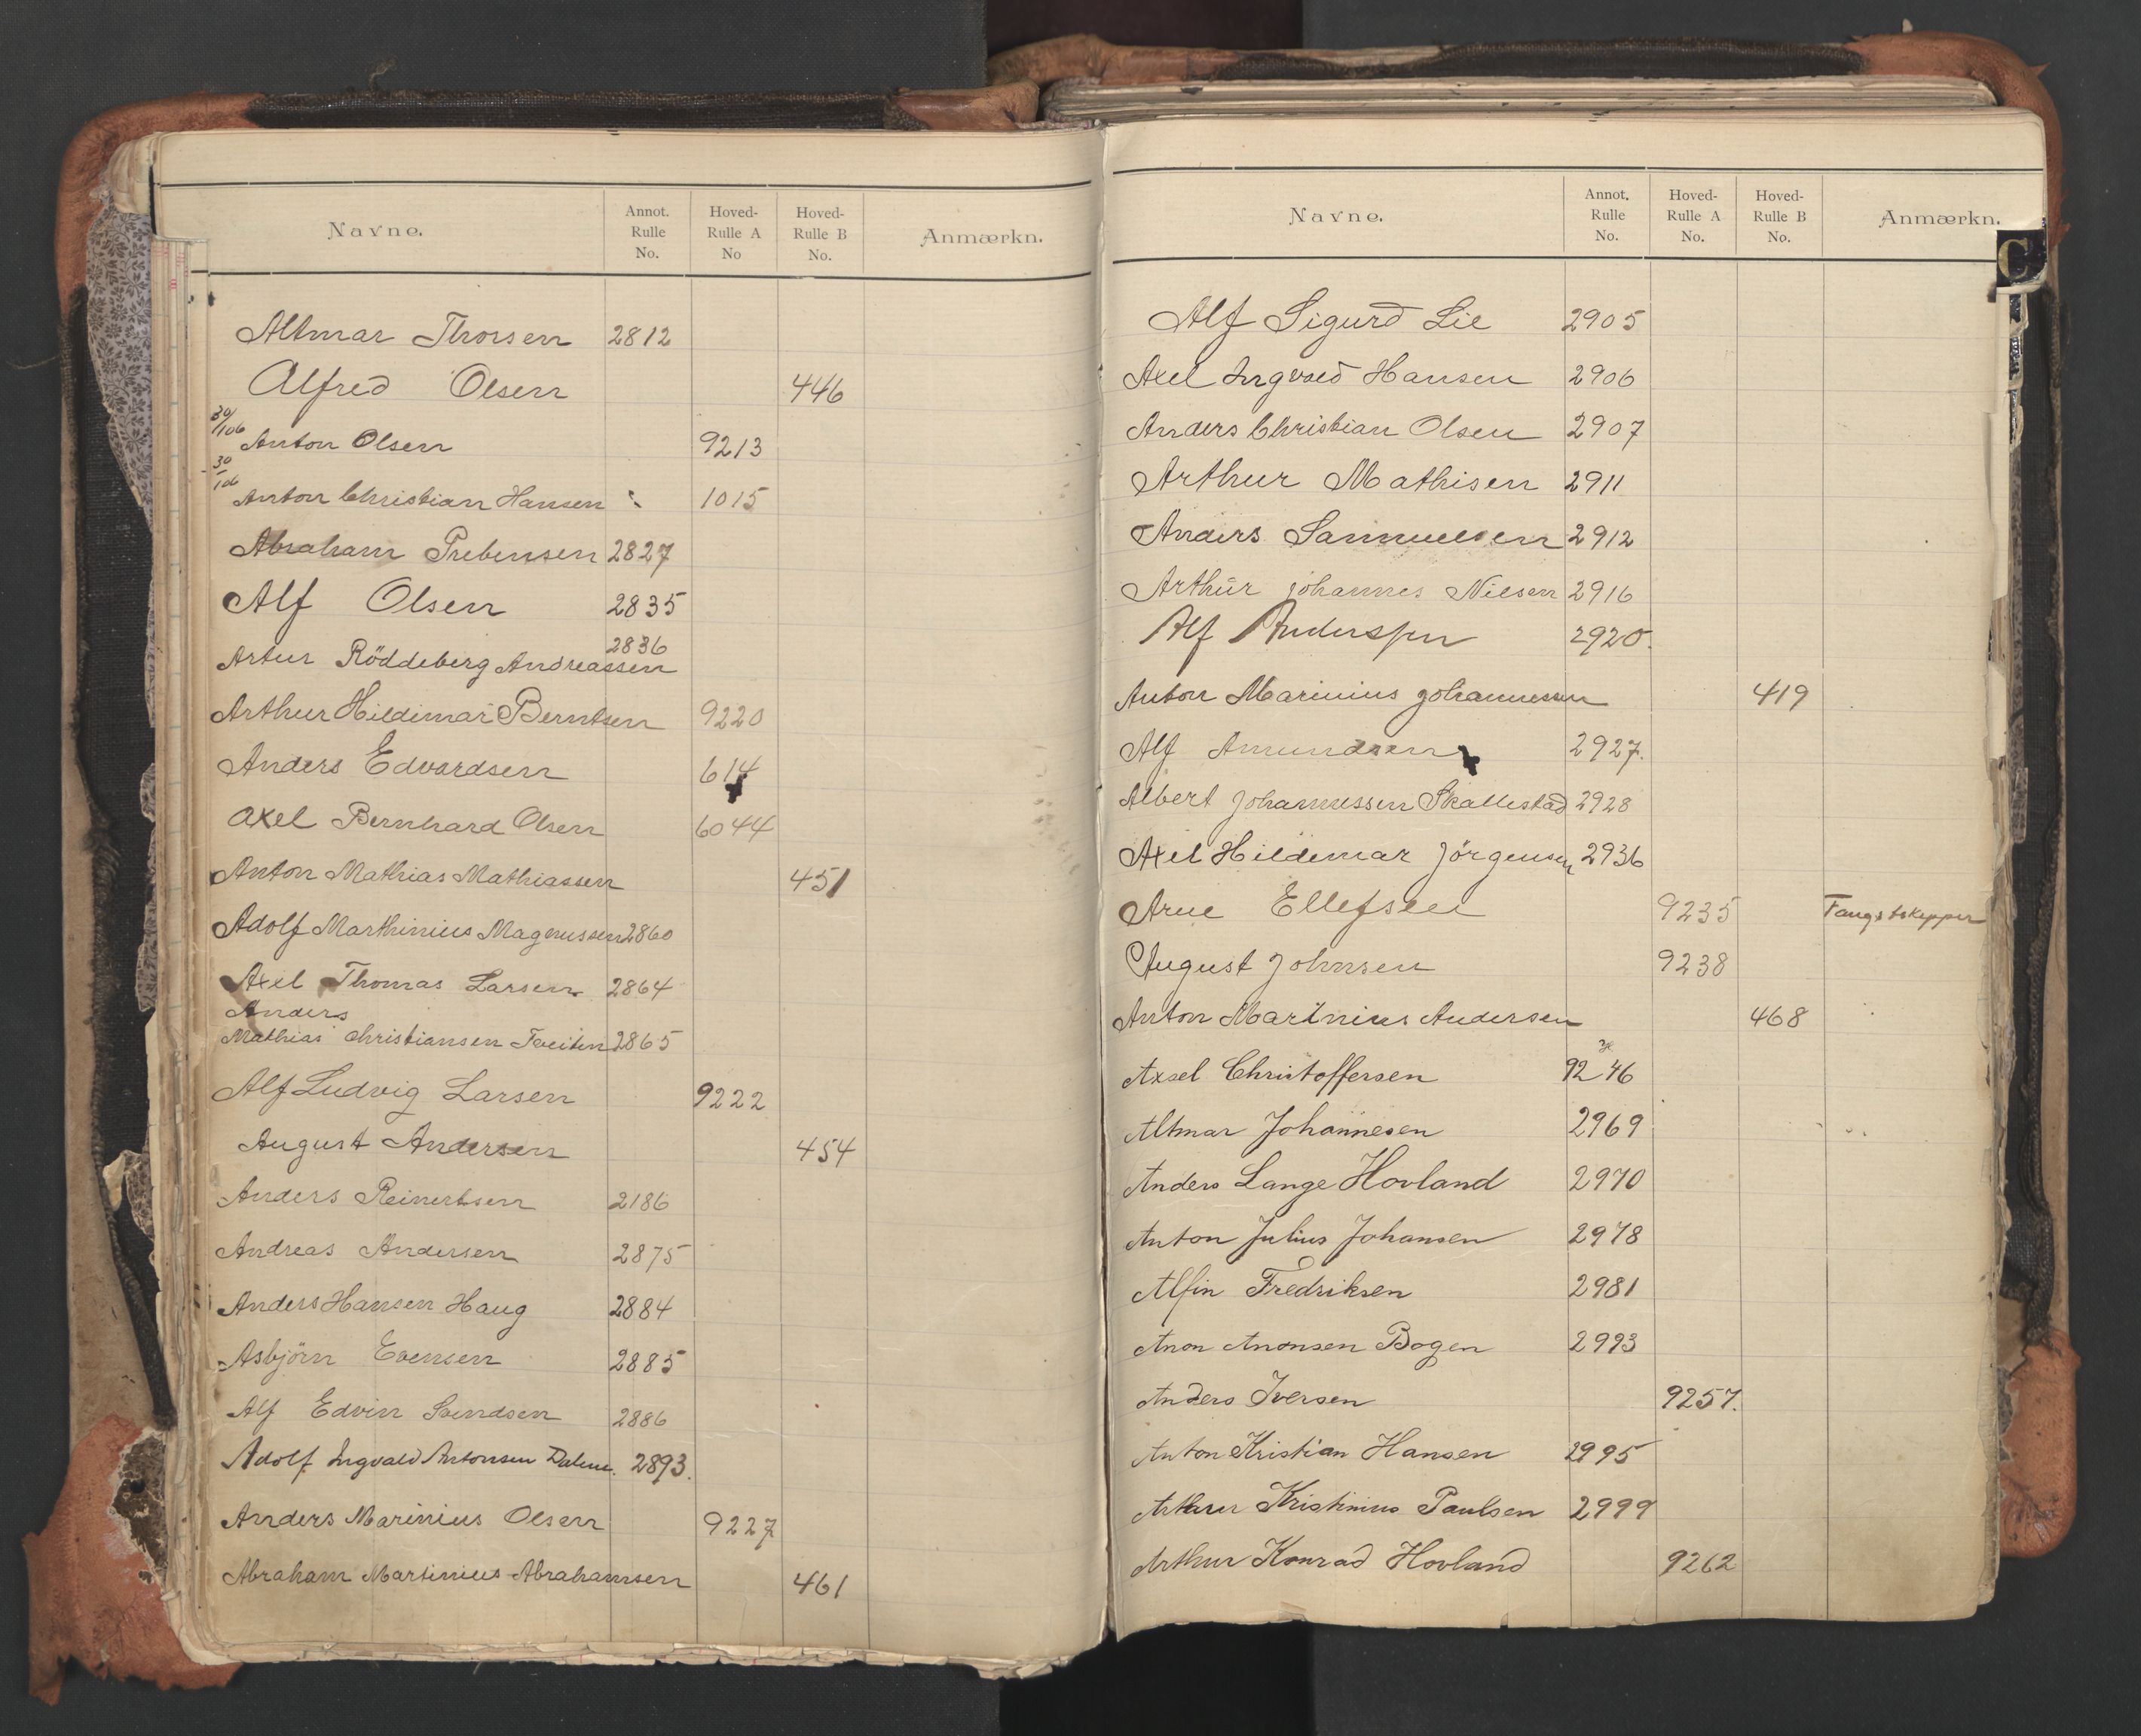 Navne. Annot. Rulle No. Hoved-Rulle A No Hoved-Rulle B No. Anmærkn.
Altmar Thorsen 2812
Alfred Olsen 446
30/106 Anton Olsen 9213
30/106 Anton Christian Hansen 1015
Abraham Prebensen 2827
Alf Olsen 2835
Artur Röddeberg Andreassen 2836
Arthur Hildimar Berntsen 9220
Anders Edvardsen 614
Axel Bernhard Olsen 6044
Anton Mathias Mathiassen 451
Adolf Marthinius Magnussen 2860
Axel Thomas Larsen 2864
Anders
Mathias Christiansen Tveiten 2865
Alf Ludvig Larsen 9222
August Andersen 454
Anders Reinertsen 2186
Andreas Andersen 2875
Anders Hansen Haug 2884
Asbjörn Evensen 2885
Alf Edvin Svendsen 2886
Adolf Ingvald Antonsen Dalene. 2893.
Anders Marinius Olsen 9227
Abraham Martinius Abrahamsen 461
Navne. Annot. Rulle No. Hoved-Rulle A No. Hoved-Rulle B No. Anmærkn.
C
Alf Sigurd Lie 2905
Axel Ingvald Hansen 2906
Anders Christian Olsen 2907
Arthur Mathisen 2911
Anders Samuelsen 2912
Arthur Johannes Nilsen 2916
Alf Anderssen 2920.
Anton Marinius Johannessen 419
Alf Amundsen 2927.
Albert Johannessen Skallestad 2928
Axel Hildemar Jörgensen 2936
Arne Ellefsen 9235 Fangstskipper
August Johnsen 9238
Anton Marinius Andersen 468
Axsel Christoffersen 9246
Altmar Johannesen 2969
Anders Lange Hovland 2970
Anton Julius Johansen 2978
Alfin Fredriksen 2981
Anon Anonsen Bogen 2993
Anders Iversen 9257.
Anton Kristian Hansen 2995
Arthur Kristinius Paulsen 2999
Arthur Konrad Hovland 9262